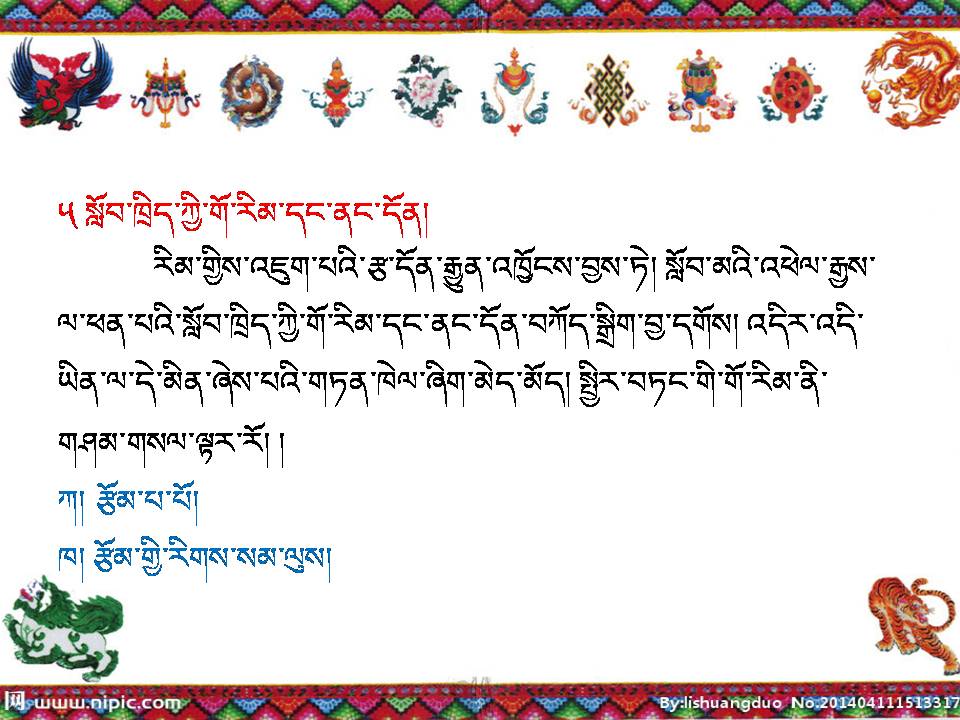 ༥ སློབ་ཁྲིད་ཀྱི་གོ་རིམ་དང་ནང་དོན།
རིམ་གྱིས་འཇུག་པའི་རྩ་དོན་རྒྱུན་འཁྱོངས་བྱས་ཏེ། སློབ་མའི་འཕེལ་རྒྱས་
ལ་ཕན་པའི་སློབ་ཁྲིད་ཀྱི་གོ་རིམ་དང་ནང་དོན་བཀོད་སྒྲིག་བྱ་དགོས། འདིར་འདི་
ཡིན་ལ་དེ་མིན་ཞེས་པའི་གཏན་ཁེལ་ཞིག་མེད་མོད། སྤྱིར་བཏང་གི་གོ་རིམ་ནི་
གཤམ་གསལ་ལྟར་རོ། །
ཀ། རྩོམ་པ་པོ།
ཁ། རྩོམ་གྱི་རིགས་སམ་ལུས།
网 www.nipic.com
By:lishuangduo No:20140411151331​7